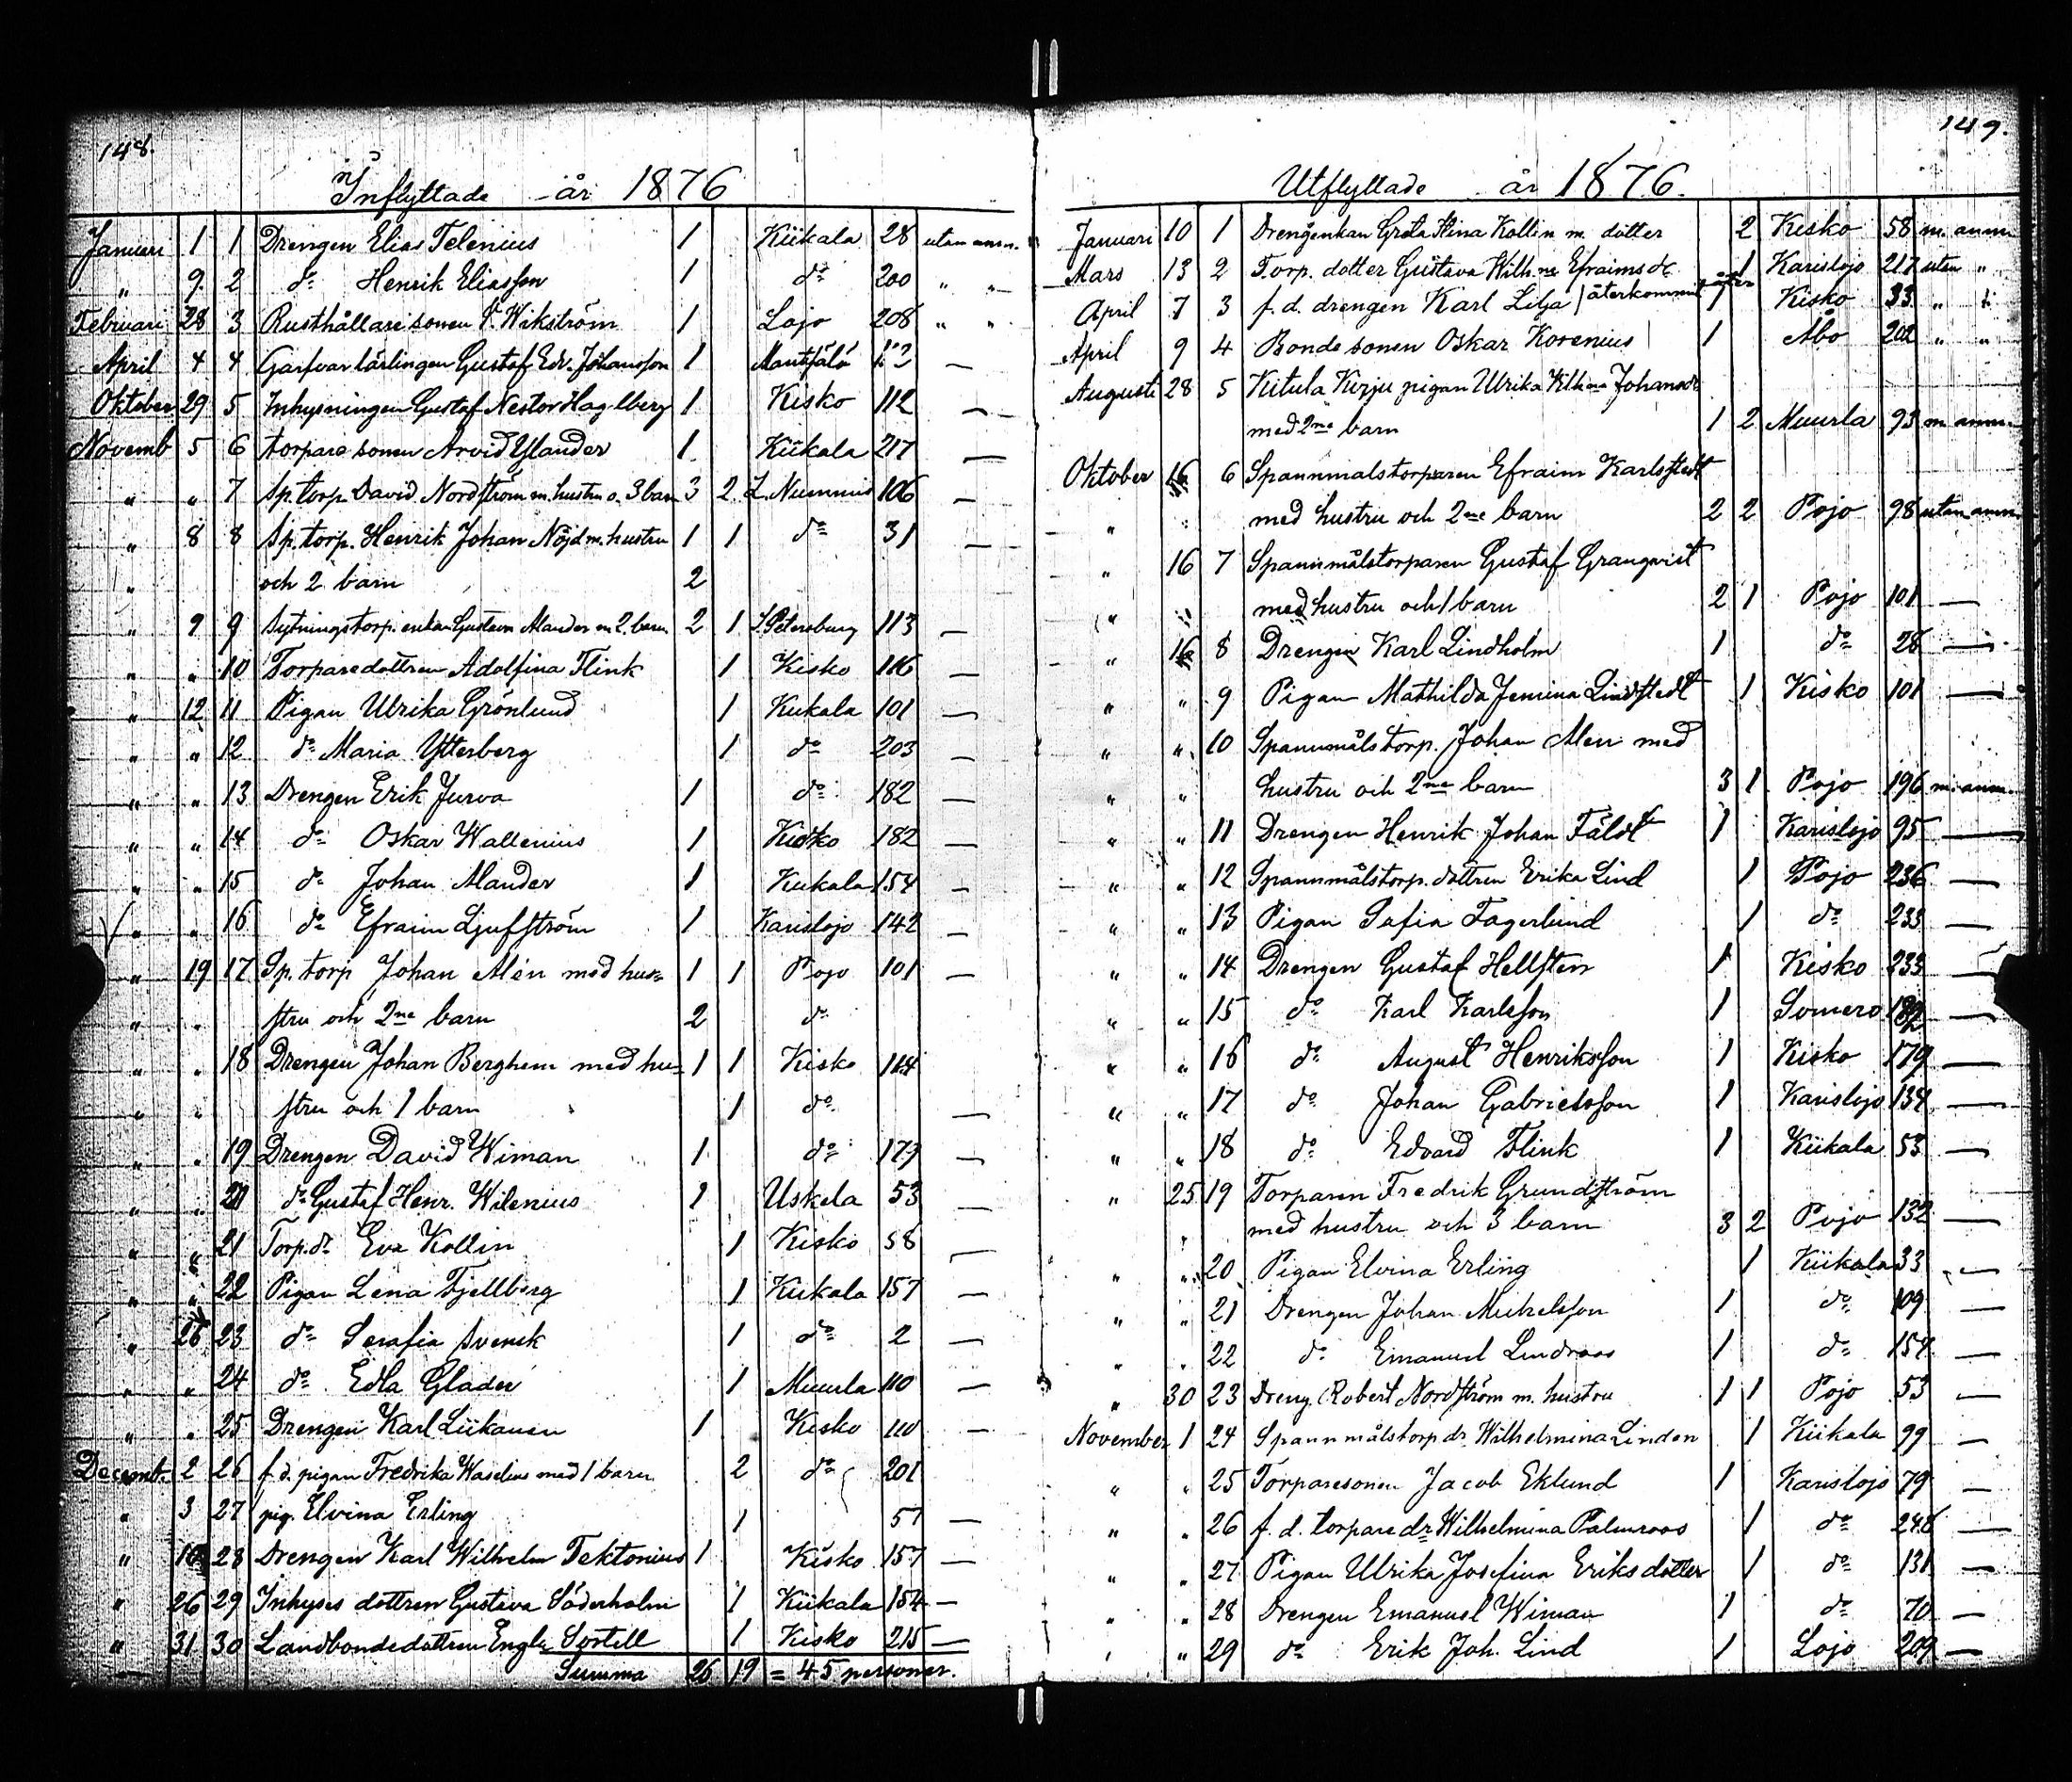 148.
Inflyttade år 1876
Januari 1 1 Drengen Elias Telenius 1 Kiikala 28 utan anm.
" 9 2 do Henrik Eliasson 1 do 200 " "
Februari 28 3 Rusthållaresonen V. Wikström 1 Lojo 208 " "
April 4 4 Garfvarlärlingen Gustaf Edv. Johansson 1 —
Oktober 29 5 Inhysningen Gustaf Nestor Hagelberg 1 Kisko 112 —
Novemb 5 6 torparesonen Arvid Ylander 1 Kiikala 217 —
" " 7 Sp. torp David Nordström m. hustru o. 3 barn 3 2 L. Nummis 106 —
" 8 8 Sp. torp. Henrik Johan Nöjd m. hustru 1 1 do 31 —
" och 2 barn 2
" 9 9 Sytningstorp. enkan Gustava Alander m 2 barn 2 1 S. Petersburg 113 —
" " 10 Torparedottren Adolfina Flink 1 Kisko 116 —
" 12 11 Pigan Ulrika Grönlund 1 Kiikala 101 —
" " 12 do Maria Ytterberg 1 do 203 —
" " 13 Drengen Erik Jurva 1 do 182 —
" " 14 do Oskar Wallenius 1 Kisko 182 —
" " 15 do Johan Alander 1 Kiikala 154 —
" " 16 do Efraim Ljufström 1 Karislojo 142 —
" 19 17 Sp. torp Johan Alén med hu- 1 1 Pojo 101 —
" " stru och 2ne barn 2 do
" " 18 Drengen Johan Berghem med hu- 1 1 Kisko 114
" " stru och 1 barn 1 do —
" " 19 Drengen David Wiman 1 do 179 —
" " 20 do Gustaf Henr. Wilenius 1 Uskela 53 —
" " 21 Torp. dr Eva Kollin 1 Kisko 58 —
" " 22 Pigan Lena Fjellberg 1 Kiikala 157 —
" 26 23 do Serafia Svensk 1 do 2 —
" " 24 do Edla Glader 1 Muurla 110 —
" " 25 Drengen Karl Liikanen 1 Kisko 110 —
Decemb. 2 26 f. d. pigan Fredrika Waselius med 1 barn 2 do 201
" 3 27 pig. Elvina Erling 1 57 —
" 10 28 Drengen Karl Wilhelm Tektonius 1 Kisko 157 —
" 26 29 Inhyses dottren Gustava Söderholm 1 Kiikala 154 —
" 31 30 Landbondedottren Engla Sortell 1 Kisko 215 —
Summa 26 19 = 45 personer.
149.
Utflyttade år 1876.
Januari 10 1 Drengenkan Greta Stina Kollin m. dotter 2 Kisko 58 m. anm
Mars 13 2 Torp. dotter Gustava Wilh:na Efraimsdr 1 Karislojo 217 utan "
April 7 3 f. d. drengen Karl Lilja / återkommit 1 Kisko 33 " "
April 9 4 Bondesonen Oskar Korenius 1 Åbo 202 " "
Augusti 28 5 Kitula Kirju pigan Ulrika Vilh:na Johansdr
med 2ne barn 1 2 Muurla 93 m anm.
Oktober 16 6 Spannmalstorparen Efraim Karlstedt
" " med hustru och 2ne barn 2 2 Pojo 98 utan anm.
" 16 7 Spannmålstorparen Gustaf Granqvist
" " med hustru och 1 barn 2 1 Pojo 101 —
" 16 8 Drengen Karl Lindholm 1 do 28 —
" " 9 Pigan Mathilda Jemina Lindstedt 1 Kisko 101 —
" " 10 Spannmålstorp. Johan Alen med
" " hustru och 2ne barn 3 1 Pojo 196 m. anm.
" " 11 Drengen Henrik Johan Fäldt 1 Karislojo 95 —
" " 12 Spannmålstorp. dottren Erika Lind 1 Pojo 236 —
" " 13 Pigan Sofia Fagerlund 1 do 233 —
" " 14 Drengen Gustaf Hellsten 1 Kisko 233 —
" " 15 do Karl Karlsson 1 Somero —
" " 16 do August Henriksson 1 Kisko 179 —
" " 17 do Johan Gabrielsson 1 Karislojo 134 —
" " 18 do Edvard Flink 1 Kiikala 53 —
" 25 19 Torparen Fredrik Grundström
" med hustru och 3 barn 3 2 Pojo 132 —
" " 20 Pigan Elvina Erling 1 Kiikala 33 —
" " 21 Drengen Johan Mickelsson 1 do 109 —
" " 22 do Emanuel Lindroos 1 do 154 —
" 30 23 Dreng. Robert Nordström m. hustru 1 1 Pojo 53 —
November 1 24 Spannmålstorp dr Wilhelmina Linden 1 Kiikala 99 —
" " 25 Torparesonen Jacob Eklund 1 Karislojo 79 —
" " 26 f. d. torpare dr Wilhelmina Palmroos 1 do 248 —
" " 27 Pigan Ulrika Josefina Eriksdotter 1 do 131 —
" " 28 Drengen Emanuel Wiman 1 do 70 —
" " 29 do Erik Joh. Lind 1 Lojo 209 —